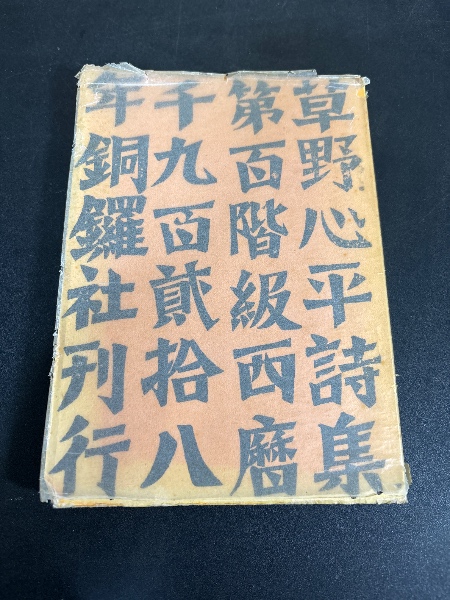 草野心平詩集
第百階級西暦
千九百貮拾八
年銅鑼社刊行